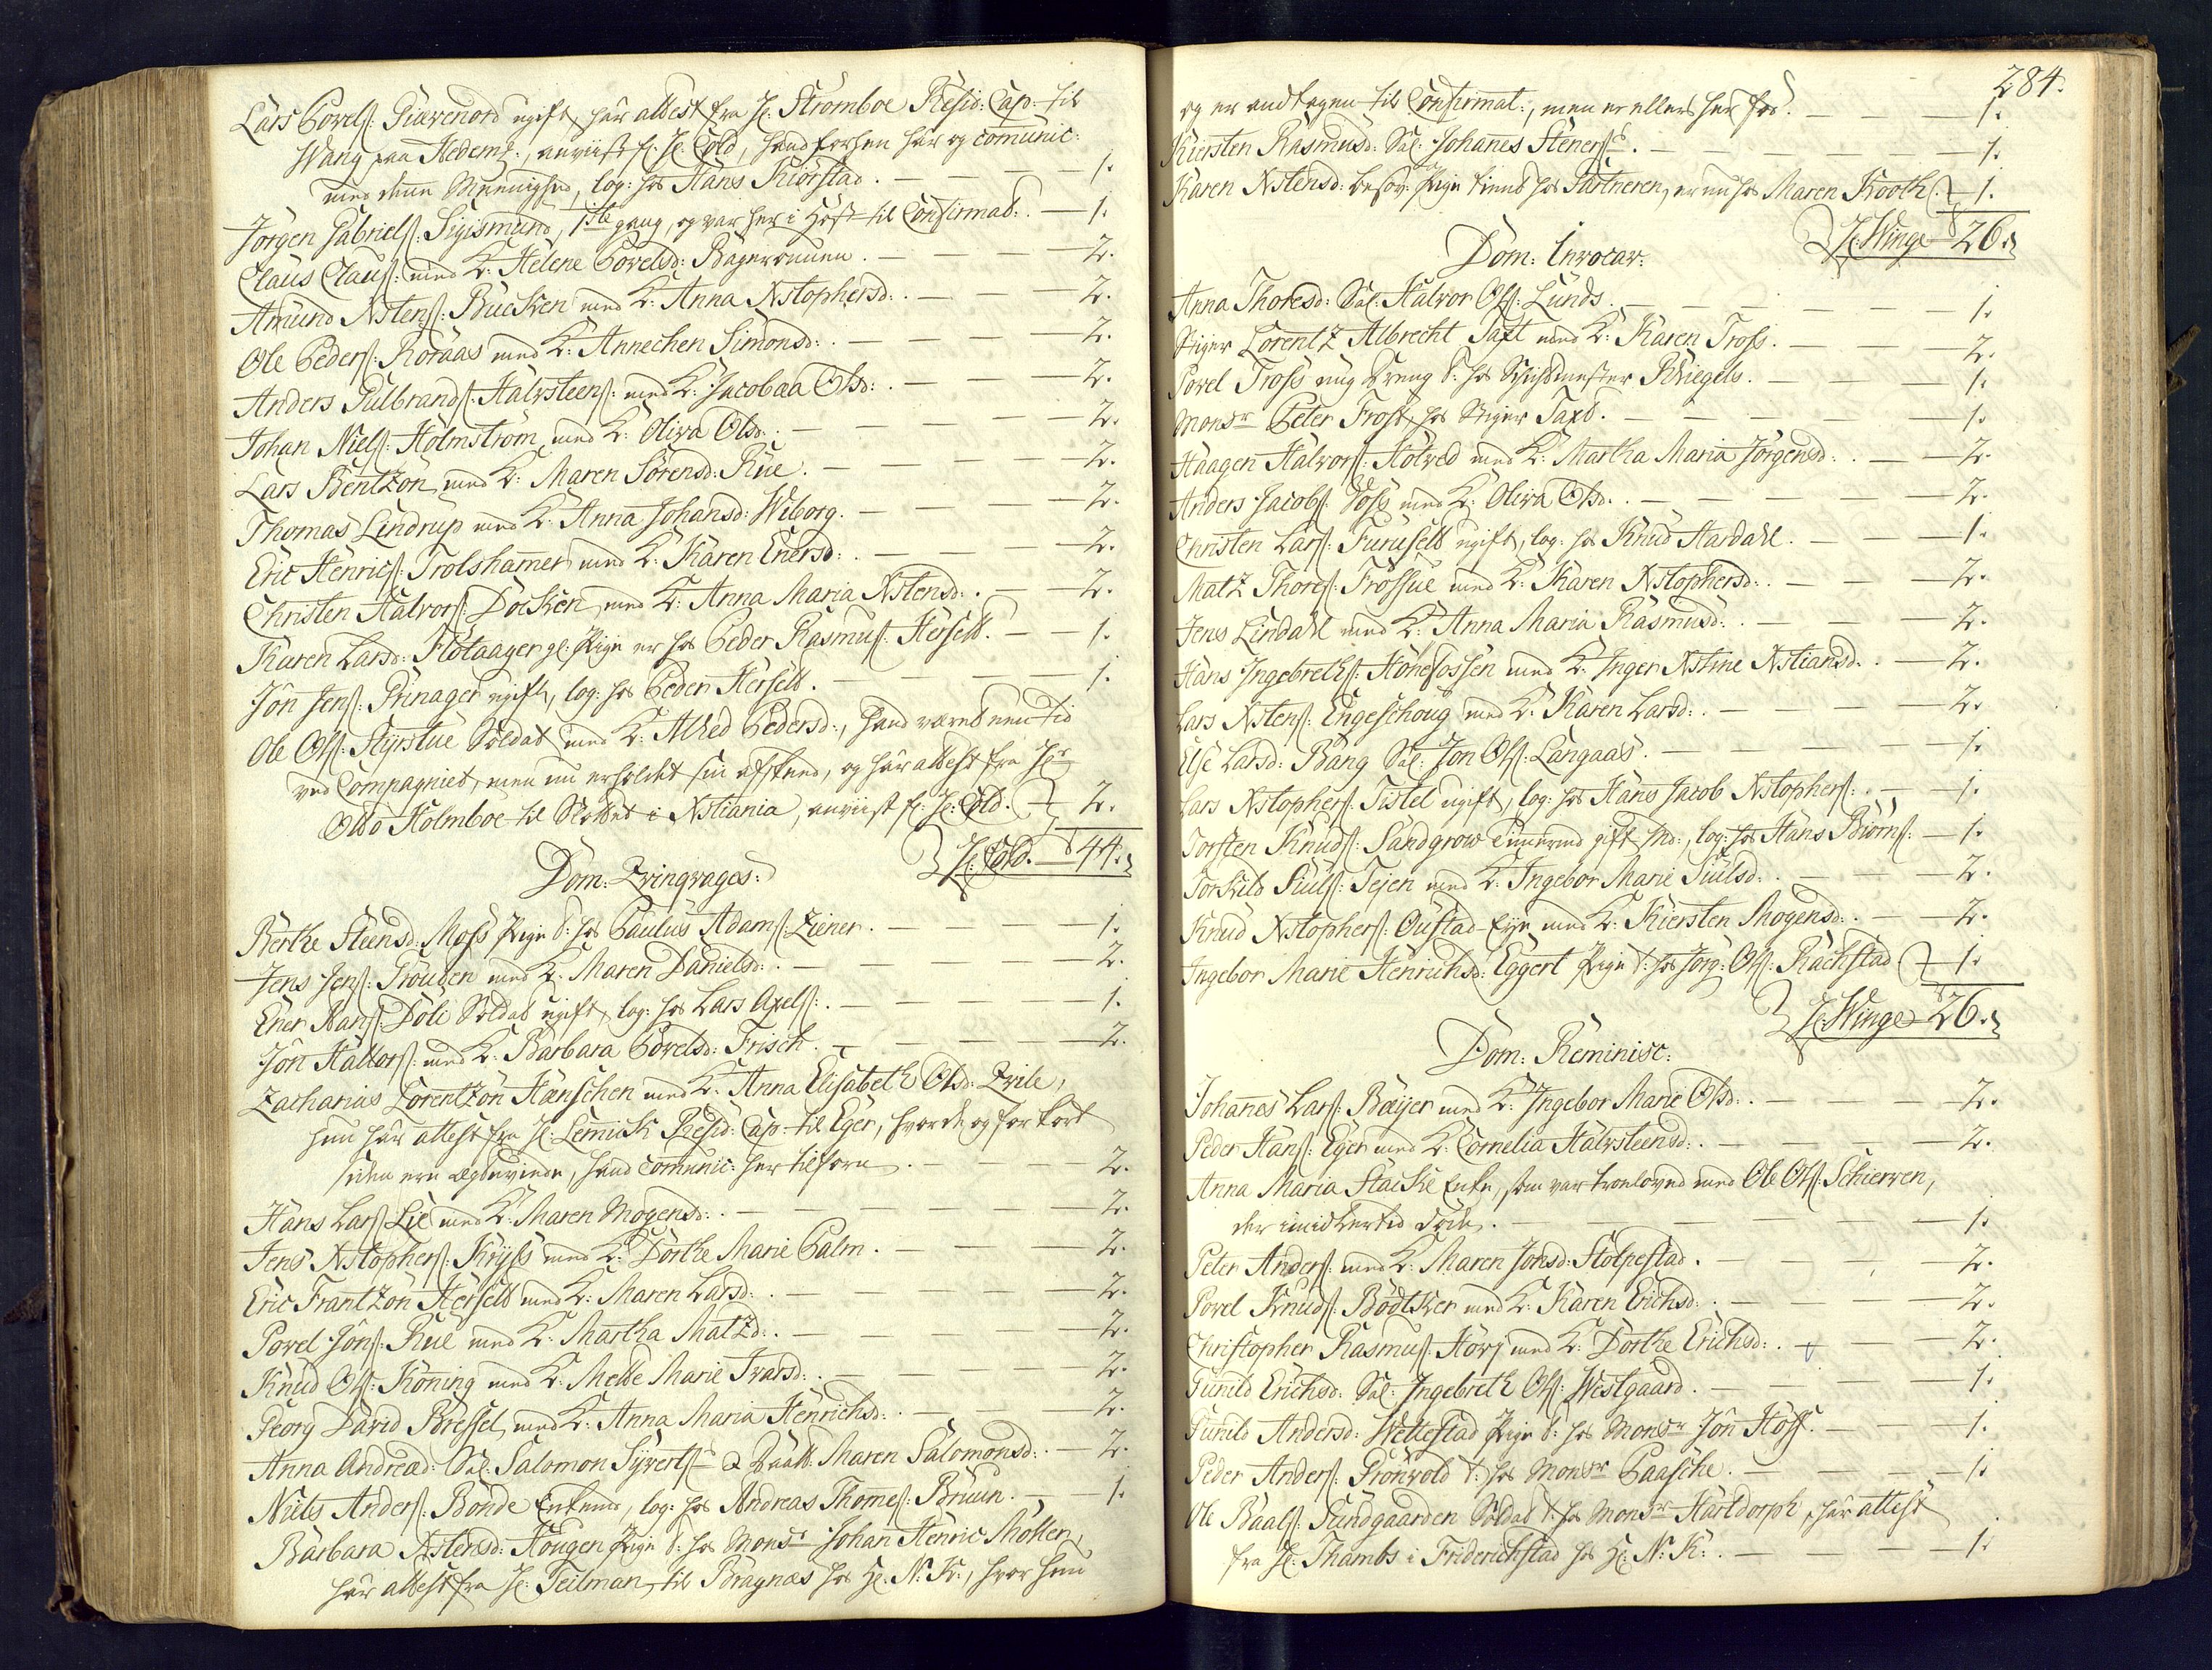 Lars Povels: Giævenord ugift, har attest fra H: Stromboe Resid: Cap: til
Wang paa Hedem:, anviist f: H: Cold, hand forhen har og comunic:
med denne Meenighed, log: hos Hans Kiørstad. — 1.
Jørgen Gabriels: Sigismund, 1ste gang, og var her i Høst til Confirmat: — 1.
Claus Claus: med K: Helene Povelsd: Bageromnen. — 2.
Amund Xstens: Bucken med K: Anna Xstophersd: — 2.
Ole Peders: Roraas med K: Annechen Simonsd: — 2.
Anders Gulbrands: Halvsteens: med K: Jacobæa Olsd: — 2.
Johan Niels: Holmstrøm med K: Oliva Olsd: — 2.
Lars Bentzon med K: Maren Sørensd: Rue. — 2.
Thomas Lindrup med K: Anna Johansd: Wiborg. — 2.
Eric Henrics: Trolshamer med K: Karen Enersd: — 2.
Christen Halvors: Docken med K: Anna Maria Xstensd: — 2.
Karen Larsd: Flotaager gl: Pige er hos Peder Rasmus: Herselt. — 1.
Jon Jens: Prinager ugift, log: hos Peder Herselt. — 1.
Ole Ols: Hyrstue Soldat med K: Alhed Pedersd:, hand været nem tid
ved Compagniet, men nu erholdet sin afskeed, og har attest fra Hr
Otto Holmboe til Slottet i Xstiania, anviist f: H: Cold. — 2.
H: Cold. — 44.
Dom: Qvinqvages:
Berthe Steensd: Moss Pige t: hos Paulus Adams: Ziener. — 1.
Jens Jens: Grouben med K: Maren Danielsd: — 2.
Ener Hans: Doli Soldat ugift, log: hos Lars Axels: — 1.
Jon Halvors: med K: Barbara Povelsd: Frisch. — 2.
Zacharias Lorentzon Hanschen med K: Anna Elisabeth Olsd: Qvile,
hun har attest fra H: Lemich Resid: Cap: til Eger, hvor de og for kort
siden ere Egteviede, hand comunic: her tilforn. — 2.
Hans Lars: Lie med K: Maren Mogensd: — 2.
Jens Xstophers: Kryss med K: Dorthe Marie Palm. — 2.
Eric Frantzon Herselt med K: Maren Larsd: — 2.
Povel Jons: Rue med K: Martha Matzd: — 2.
Knud Ols: Koning med K: Mette Marie Ivarsd: — 2.
Georg David Bressel med K: Anna Maria Henrichsd: — 2.
Anna Andread: Sal: Salomon Syverts: & Daatt: Maren Salomonsd: — 2.
Niels Anders: Bonde Enkemd, log: hos Andreas Thomes: Bruun. — 1.
Barbara Xstensd: Hougen Pige t: hos Monsr Johan Henric Møller,
har attest fra H: Teilman til Bragnæs hos H: N: K:, hvor hun
284.
og er antagen til Confirmat:, men er ellers her fød. — 1.
Kiersten Rasmusd: Sal: Johannes Steners: — 1.
Karen Xstensd: besov: Pige tient hos Gartneren, er nu hos Maren Kooth. — 1.
H: Winge — 26.
Dom: Invocav:
Anna Thoresd: Sal: Halvor Ols: Lunds. — 1.
Stiger Lorentz Albrecht Taxt med K: Karen Tross. — 2.
Povel Tross ung Dreng t: hos Schichtmester Kriegels. — 1.
Monsr Peter Frost hos Stiger Taxt. — 1.
Haagen Halvors: Holved med K: Martha Maria Jørgensd: — 2.
Anders Jacobs: Voss med K: Oliva Olsd: — 2.
Christen Lars: Furuselt ugift, log: hos Knud Hardahl. — 1.
Matz Thores: Frossue med K: Karen Xstophersd: — 2.
Jens Lindahl med K: Anna Maria Rasmusd: — 2.
Hans Ingebreths: Hønefossen med K: Inger Xstine Xstiansd: — 2.
Lars Xstens: Engeschoug med K: Karen Larsd: — 2.
Else Larsd: Bang Sal: Jon Ols: Langaas. — 1.
Lars Xstophers: Tistel ugift, log: hos Hans Jacob Xstophers: — 1.
Torsten Knuds: Sandgrow Tømermd gift Md:, log: hos Hans Biørns: — 1.
Torkild Juuls: Tejen med K: Ingebor Marie Juulsd: — 2.
Knud Xstophers: Oustad-Eye med K: Kiersten Mogensd: — 2.
Ingebor Marie Henrichsd: Eggert Pige t: hos Jørg: Ols: Rachstad — 1.
H: Winge — 26.
Dom: Reminisc:
Johannes Lars: Bæijer med K: Ingebor Marie Olsd: — 2.
Peder Hans: Eger med K: Cornelia Halvsteensd: — 2.
Anna Maria Stacke Enke, som var troeloved med Ole Ols: Schierven,
der imidlertid døde. — 1.
Peter Anders: med K: Maren Jonsd: Stolpestad. — 2.
Povel Knuds: Bødtker med K: Karen Erichsd: — 2.
Christopher Rasmus: Hovj med K: Dorthe Erichsd: — 2.
Gunild Erichsd: Sal: Ingebreth Ols: Westgaard. — 1.
Gunild Andersd: Wettestad Pige t: hos Monsr Jon Hoff. — 1.
Peder Anders: Grønvold t: hos Monsr Paasche. — 1.
Ole Baals: Sundgaarden Soldat t: hos Monsr Harboe, har attest
fra H: Thambs i Friderichstad hos H: N: K: — 1.